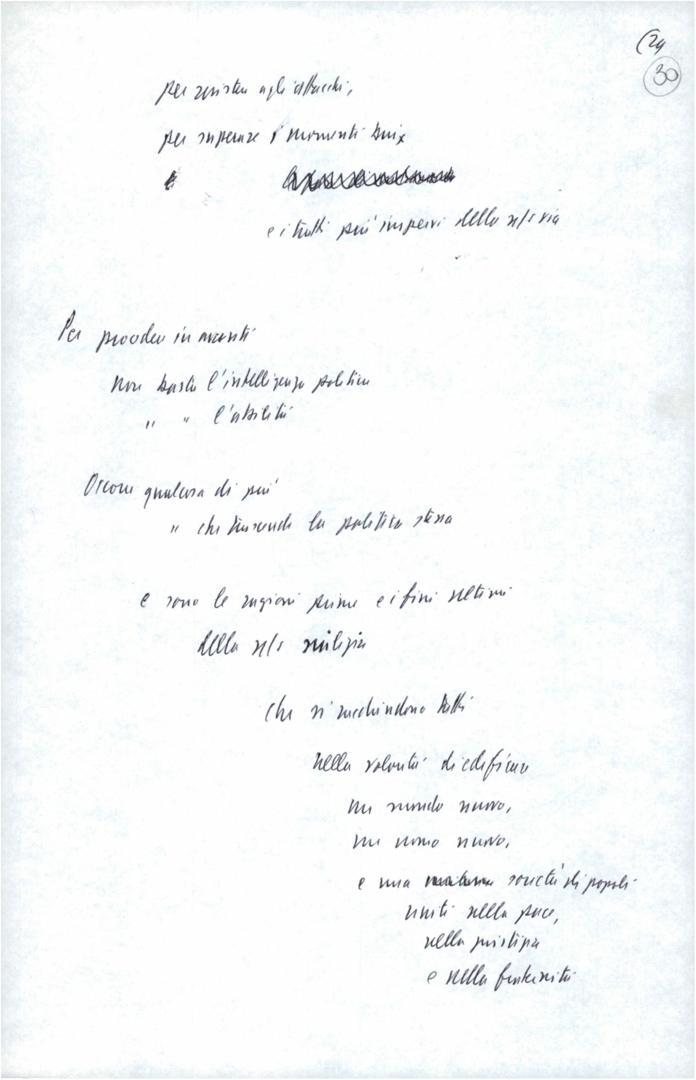 (24
30
per resistere agli attacchi,
per superare i momenti
e
e i tratti più impervi della n/s via
Per procedere in avanti
Non basta l'intelligenza politica
" " l'abilità
Occorre qualcosa di più
" che trascende la politica stessa
e sono le ragioni prime e i fini ultimi
della n/s milizia
che si racchiudono tutti
nella volontà di edificare
un mondo nuovo,
un uomo nuovo,
e una società di popoli
uniti nella pace,
nella giustizia
e nella fraternità